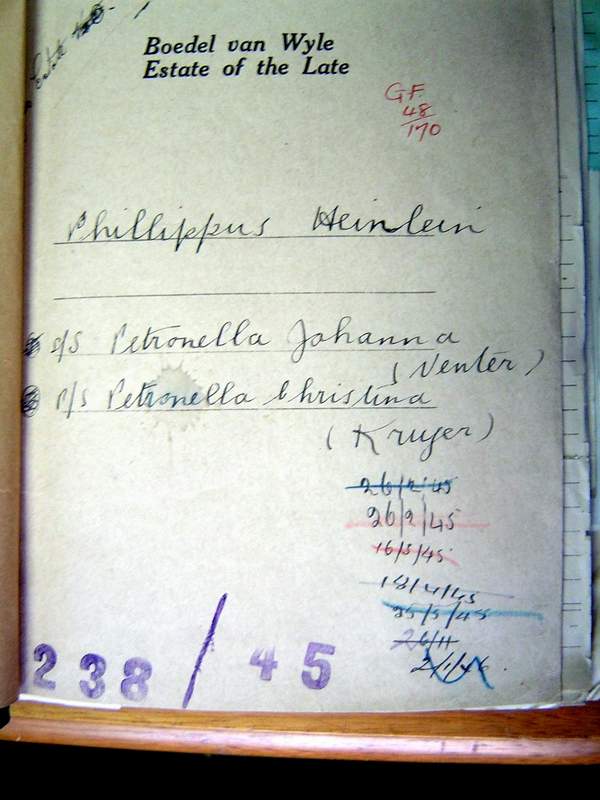 Estate
Boedel van Wyle
Estate of the Late
G.F.
48
170
Phillippus Heinlein
s/s Petronella Johanna
(Venter)
p/s Petronella Christina
(Kruger)
26/2/45
26/2/45
16/3/45
18/4/45
25/5/45
26/11
2/1/46.
238/45